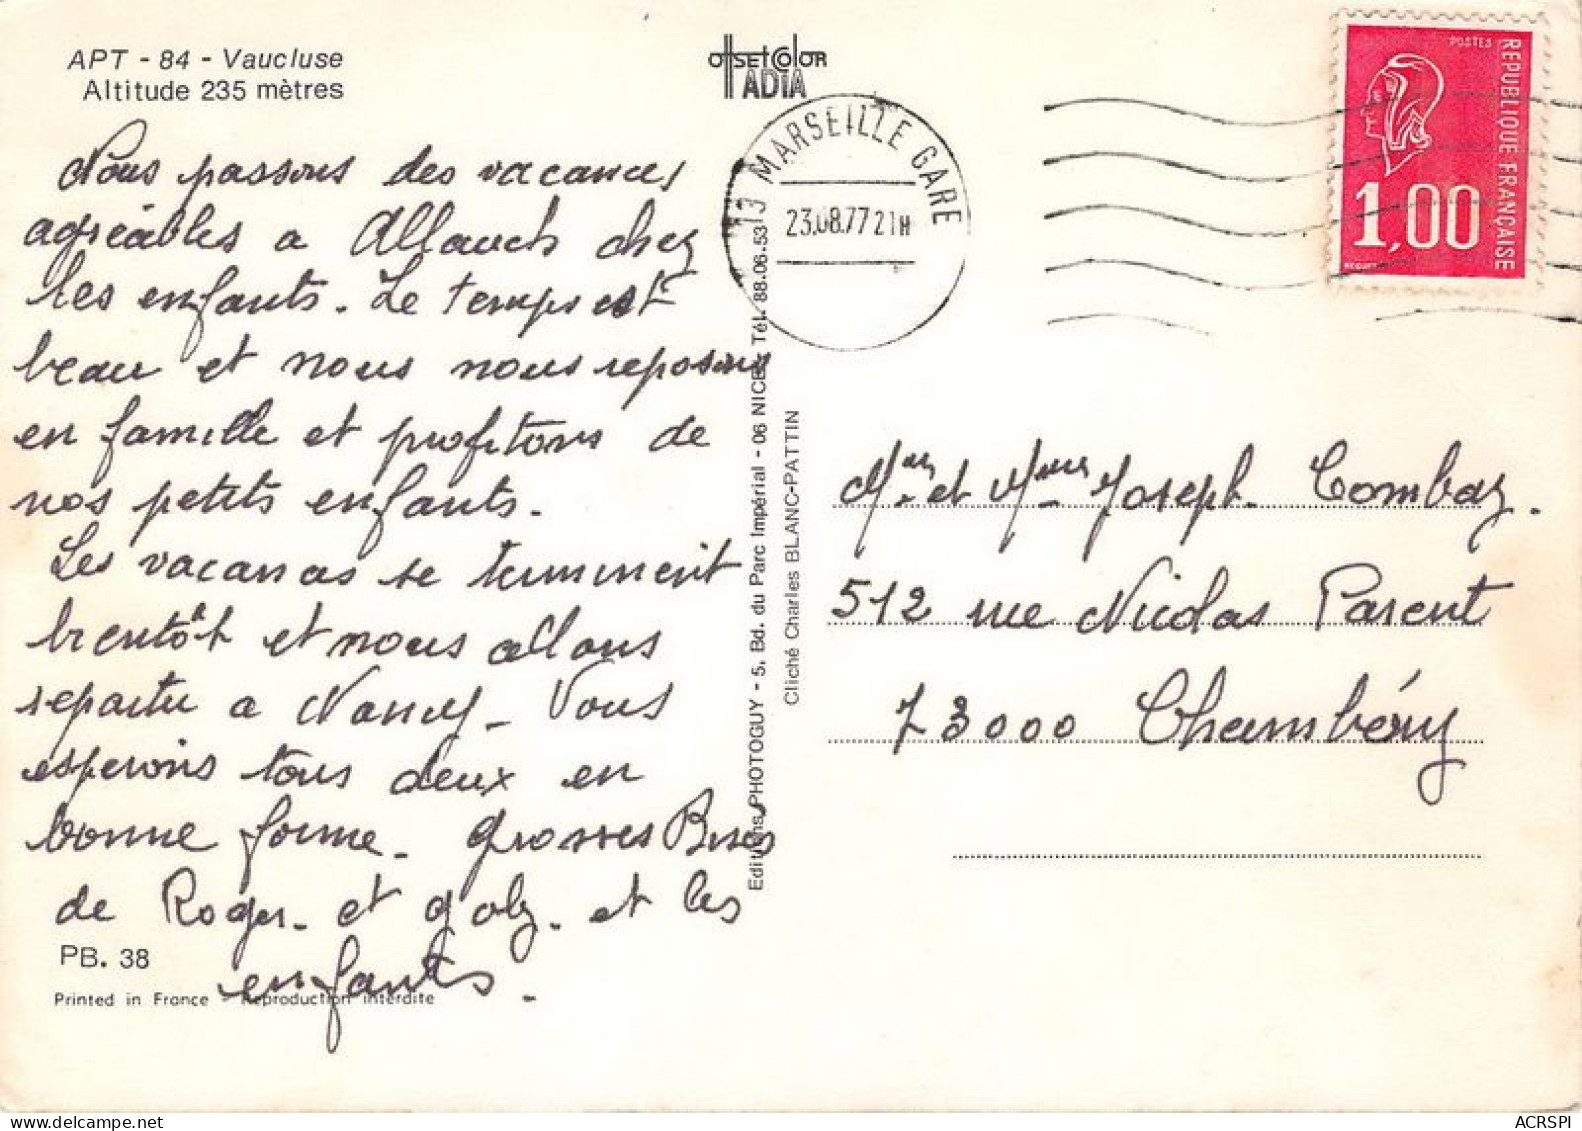 APT - 84 - Vaucluse
Altitude 235 mètres
OFFSETCOLOR
ADIA
13 MARSEILLE GARE
23.08.77 21H
POSTES
REPUBLIQUE FRANÇAISE
1,00
BEQUET
Nous passons des vacances
agréables a Allauch chez
les enfants. Le temps est
beau et nous nous reposons
en famille et profitons de
nos petits enfants.
Les vacances se terminent
bientôt et nous allons
repartir a Nancy. Vous
esperons tous deux en
bonne forme. Grosses Bises
de Roger. et Gaby. et les
enfants.
PB. 38
Printed in France - Reproduction interdite
Editions PHOTOGUY - 5, Bd. du Parc Impérial - 06 NICE - Tél. 88.06.53
Cliché Charles BLANC-PATTIN
Mr et Mme Joseph Combaz.
512 rue Nicolas Parent
73000 Chambéry
ACRSPI